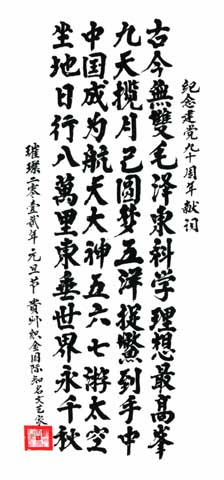 纪念建党九十周年献词
古今無雙毛泽東科学理想最高峯
九天揽月已圆梦五洋捉鱉到手中
中国成为航天大神五六七游太空
坐地日行八萬里東垂世界永千秋
璀璨二零壹贰年元旦节貴州织金国际知名文艺家